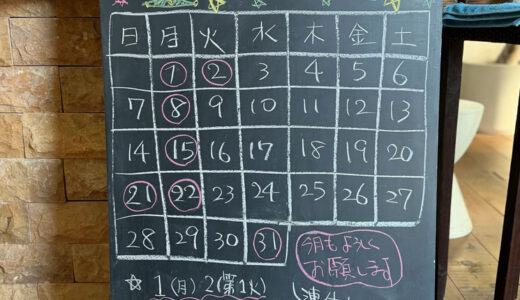 日 月 火 水 木 金 土
1 2 3 4 5 6
7 8 9 10 11 12 13
14 15 16 17 18 19 20
21 22 23 24 25 26 27
28 29 30 31
今月もよろしく
お願いします
☆ 1(月) 2(第1火)